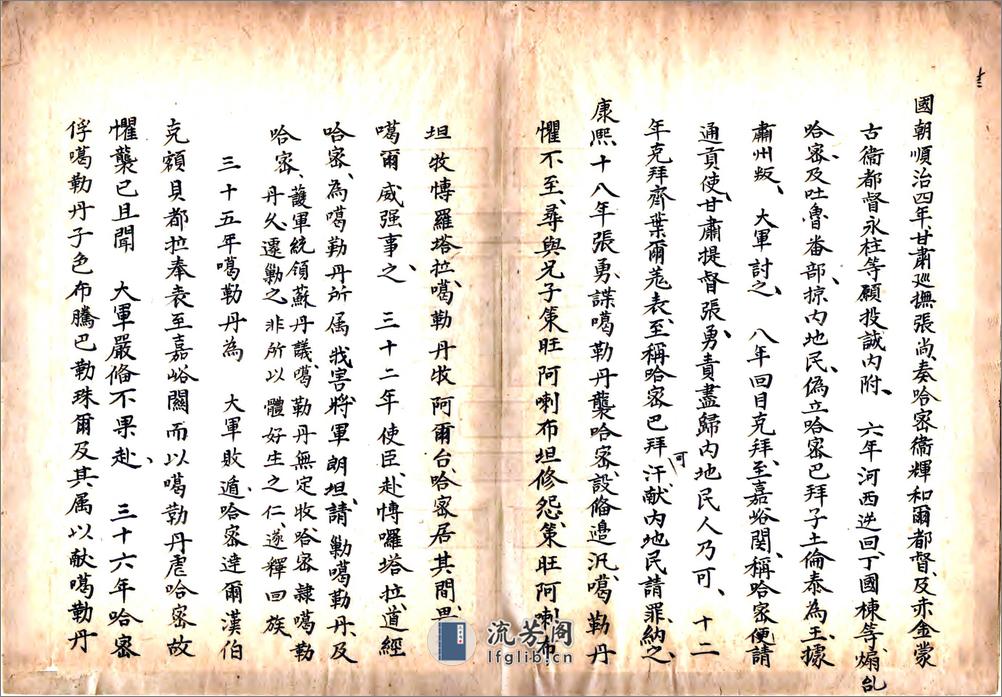 國朝順治四年甘肅巡撫張尚奏哈密衞輝和爾都督及赤金蒙
古衞都督永柱等願投誠內附、六年河西逆回丁國棟等煽乱
哈密及吐魯番部掠內地民偽立哈密巴拜子土倫泰為王據
肅州叛、大軍討之、八年回目克拜至嘉峪関稱哈密便請
通貢使甘肅提督張勇責盡歸內地民人乃可、十二
年克拜齊葉爾羗表至稱哈密巴拜汗献內地民請罪納之
可
康熙十八年張勇謀噶勒丹襲哈密設俻邉汛噶勒丹
懼不至尋與兄子策旺阿喇布坦修怨策旺阿喇布
坦牧愽羅塔拉噶勒丹牧阿爾台哈密居其間
噶爾威强事之、三十二年使臣赴愽囉塔拉道經
哈密為噶勒丹所属我害將軍朗坦請勦噶勒丹及
哈密護軍統領蘇丹議噶勒丹無定牧哈密隸噶勒
丹久遠勦之非所以體好生之仁遂釋回族
三十五年噶勒丹為 大軍敗遁哈密達爾漢伯
克額貝都拉奉表至嘉峪關而以噶勒丹虐哈密故
懼襲已且聞 大軍嚴俻不果赴、三十六年哈密
俘噶勒丹子色布騰巴勒珠爾及其属以献噶勒丹
流芳阁
lfglib.cn